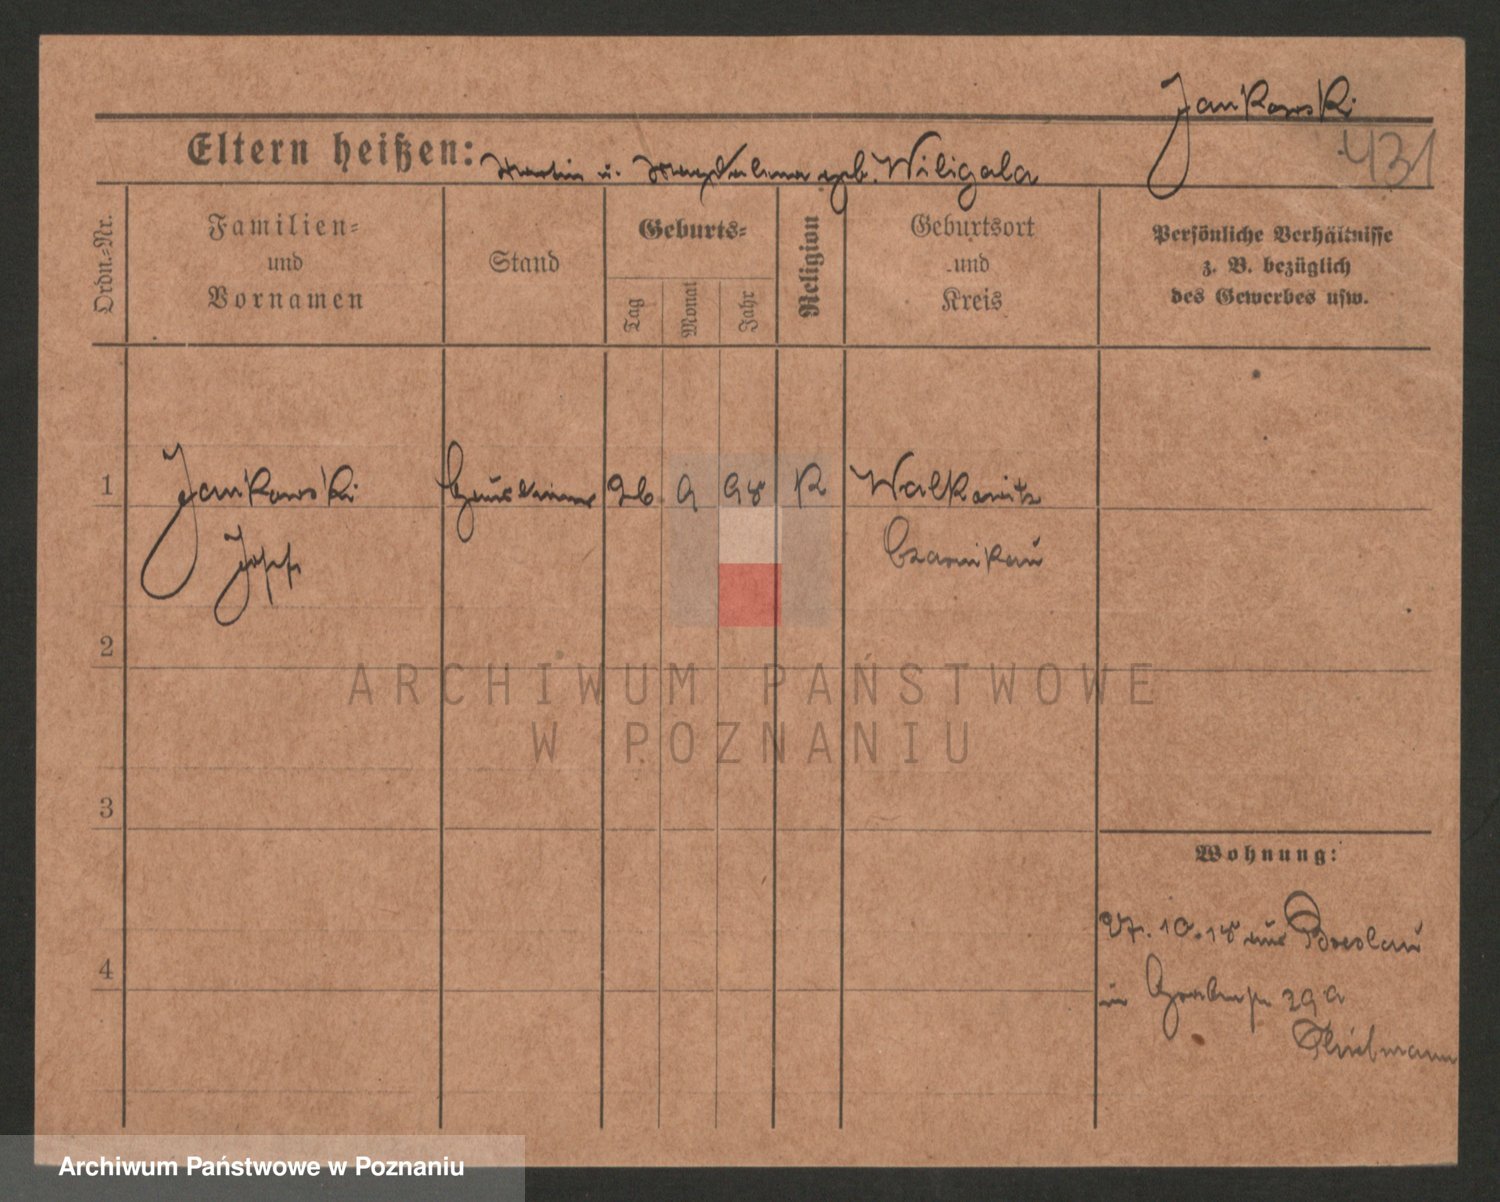 Jankowski
431
Eltern heißen: Martin u. Magdalena geb. Wiligala
Ordn.-Nr.
Familien-
und
Vornamen
Stand
Geburts-
Tag
Monat
Jahr
Religion
Geburtsort
und
Kreis
Persönliche Verhältnisse
z. B. bezüglich
des Gewerbes usw.
1
Jankowski
Josef
Hausdiener
26
9
98
K
Walkowitz
Czarnikau
2
3
4
Wohnung:
27. 10. 18 aus Breslau
in 29a
ARCHIWUM PAŃSTWOWE
W POZNANIU
Archiwum Państwowe w Poznaniu